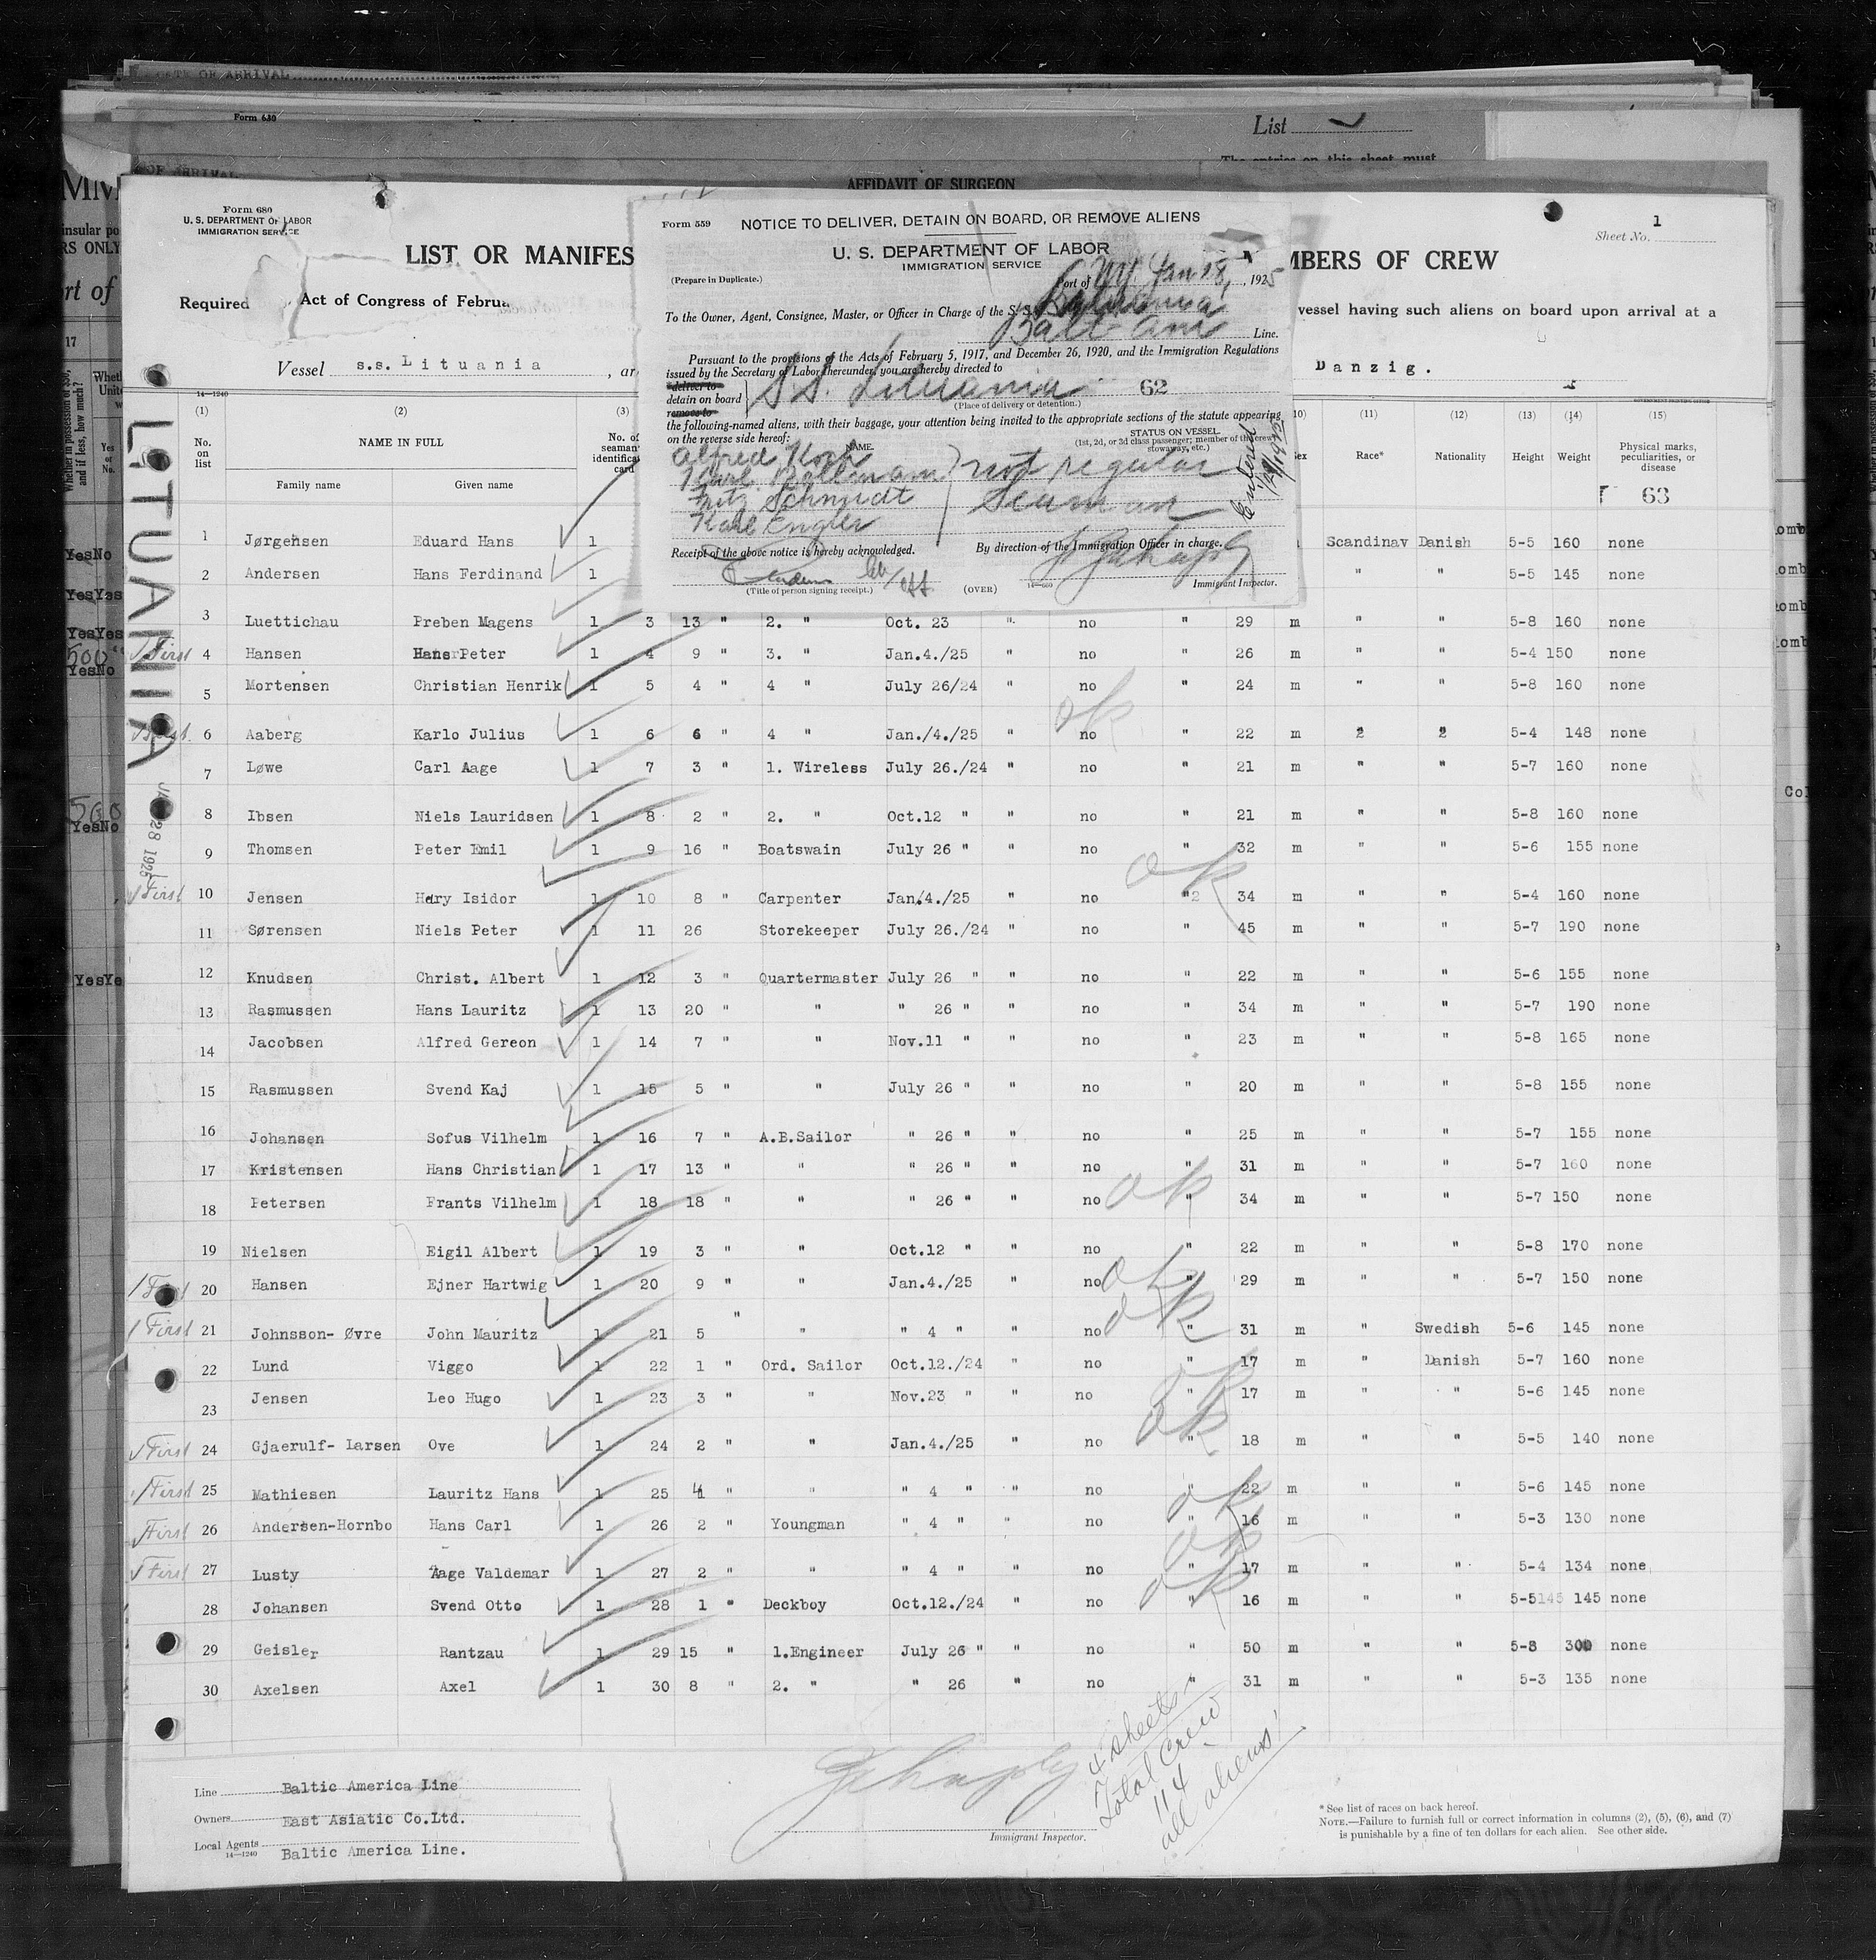 DATE OF ARRIVAL
Form 630
List
The entries on this sheet must
OF ARRIVAL
AFFIDAVIT OF SURGEON
Form 680
U. S. DEPARTMENT OF LABOR
IMMIGRATION SERVICE
Sheet No. 1
LIST OR MANIFES
MBERS OF CREW
Required Act of Congress of Februa
vessel having such aliens on board upon arrival at a
Vessel s.s. Lituania , ar
Danzig.
Form 559 NOTICE TO DELIVER, DETAIN ON BOARD, OR REMOVE ALIENS
U. S. DEPARTMENT OF LABOR
IMMIGRATION SERVICE
(Prepare in Duplicate.)
Port of NY. Jan 28, 1925
To the Owner, Agent, Consignee, Master, or Officer in Charge of the S. S. Lituania
Balt Am Line.
Pursuant to the provisions of the Acts of February 5, 1917, and December 26, 1920, and the Immigration Regulations
issued by the Secretary of Labor thereunder, you are hereby directed to
deliver to
detain on board
remove to
SS. Lituania 62
(Place of delivery or detention.)
the following-named aliens, with their baggage, your attention being invited to the appropriate sections of the statute appearing
on the reverse side hereof:
NAME. STATUS ON VESSEL
(1st, 2d, or 3d class passenger; member of the crew, stowaway, etc.)
Alfred Koch
Karl Bollmann not regular
Fritz Schmidt seaman
Karl Engler
Entered
Receipt of the above notice is hereby acknowledged. By direction of the Immigration Officer in charge.
(Title of person signing receipt.) (OVER) 14—680 Immigrant Inspector.
14—1240
(1) (2) (3) (10) (11) (12) (13) (14) (15)
No. on list NAME IN FULL No. of seaman' identifica card Sex Race* Nationality Height Weight Physical marks, peculiarities, or disease
Family name Given name
63
LITUANIA
JAN 28 1925
1 Jørgensen Eduard Hans 1 Scandinav Danish 5-5 160 none
2 Andersen Hans Ferdinand 1 " " 5-5 145 none
3 Luettichau Preben Magens 1 3 13 " 2. " Oct. 23 " no " 29 m " " 5-8 160 none
First 4 Hansen Hans Peter 1 4 9 " 3. " Jan.4./25 " no " 26 m " " 5-4 150 none
5 Mortensen Christian Henrik 1 5 4 " 4 " July 26/24 " no " 24 m " " 5-8 160 none
ok
First 6 Aaberg Karlo Julius 1 6 6 " 4 " Jan./4./25 " no " 22 m 2 2 5-4 148 none
7 Løwe Carl Aage 1 7 3 " 1. Wireless July 26./24 " no " 21 m " " 5-7 160 none
8 Ibsen Niels Lauridsen 1 8 2 " 2. " Oct.12 " " no " 21 m " " 5-8 160 none
9 Thomsen Peter Emil 1 9 16 " Boatswain July 26 " " no " 32 m " " 5-6 155 none
ok
First 10 Jensen Hary Isidor 1 10 8 " Carpenter Jan.4./25 " no "2 34 m " " 5-4 160 none
11 Sørensen Niels Peter 1 11 26 Storekeeper July 26./24 " no " 45 m " " 5-7 190 none
12 Knudsen Christ. Albert 1 12 3 " Quartermaster July 26 " " no " 22 m " " 5-6 155 none
13 Rasmussen Hans Lauritz 1 13 20 " " " 26 " " no " 34 m " " 5-7 190 none
14 Jacobsen Alfred Gereon 1 14 7 " " Nov.11 " " no " 23 m " " 5-8 165 none
15 Rasmussen Svend Kaj 1 15 5 " " July 26 " " no " 20 m " " 5-8 155 none
16 Johansen Sofus Vilhelm 1 16 7 " A.B.Sailor " 26 " " no " 25 m " " 5-7 155 none
17 Kristensen Hans Christian 1 17 13 " " " 26 " " no " 31 m " " 5-7 160 none
18 Petersen Frants Vilhelm 1 18 18 " " " 26 " " no ok " 34 m " " 5-7 150 none
19 Nielsen Eigil Albert 1 19 3 " " Oct.12 " " no " 22 m " " 5-8 170 none
First 20 Hansen Ejner Hartwig 1 20 9 " " Jan.4./25 " no ok " 29 m " " 5-7 150 none
First 21 Johnsson- Øvre John Mauritz 1 21 5 " " " 4 " " no ok " 31 m " Swedish 5-6 145 none
22 Lund Viggo 1 22 1 " Ord. Sailor Oct.12./24 " no " 17 m " Danish 5-7 160 none
23 Jensen Leo Hugo 1 23 3 " " Nov.23 " " no ok " 17 m " " 5-6 145 none
First 24 Gjaerulf- Larsen Ove 1 24 2 " " Jan.4./25 " no ok " 18 m " " 5-5 140 none
First 25 Mathiesen Lauritz Hans 1 25 4 " " " 4 " " no ok " 22 m " " 5-6 145 none
First 26 Andersen-Hornbo Hans Carl 1 26 2 " Youngman " 4 " " no ok " 16 m " " 5-3 130 none
First 27 Lusty Aage Valdemar 1 27 2 " " " 4 " " no ok " 17 m " " 5-4 134 none
28 Johansen Svend Otto 1 28 1 " Deckboy Oct.12./24 " no " 16 m " " 5-5 145 145 none
29 Geisler Rantzau 1 29 15 " 1.Engineer July 26 " " no " 50 m " " 5-8 300 none
30 Axelsen Axel 1 30 8 " 2. " " 26 " no " 31 m " " 5-3 135 none
4 sheets
Total Crew
114
all aliens!
Line Baltic America Line
Owners East Asiatic Co.Ltd.
Local Agents Baltic America Line.
14—1240
Immigrant Inspector.
* See list of races on back hereof.
NOTE.—Failure to furnish full or correct information in columns (2), (5), (6), and (7)
is punishable by a fine of ten dollars for each alien. See other side.